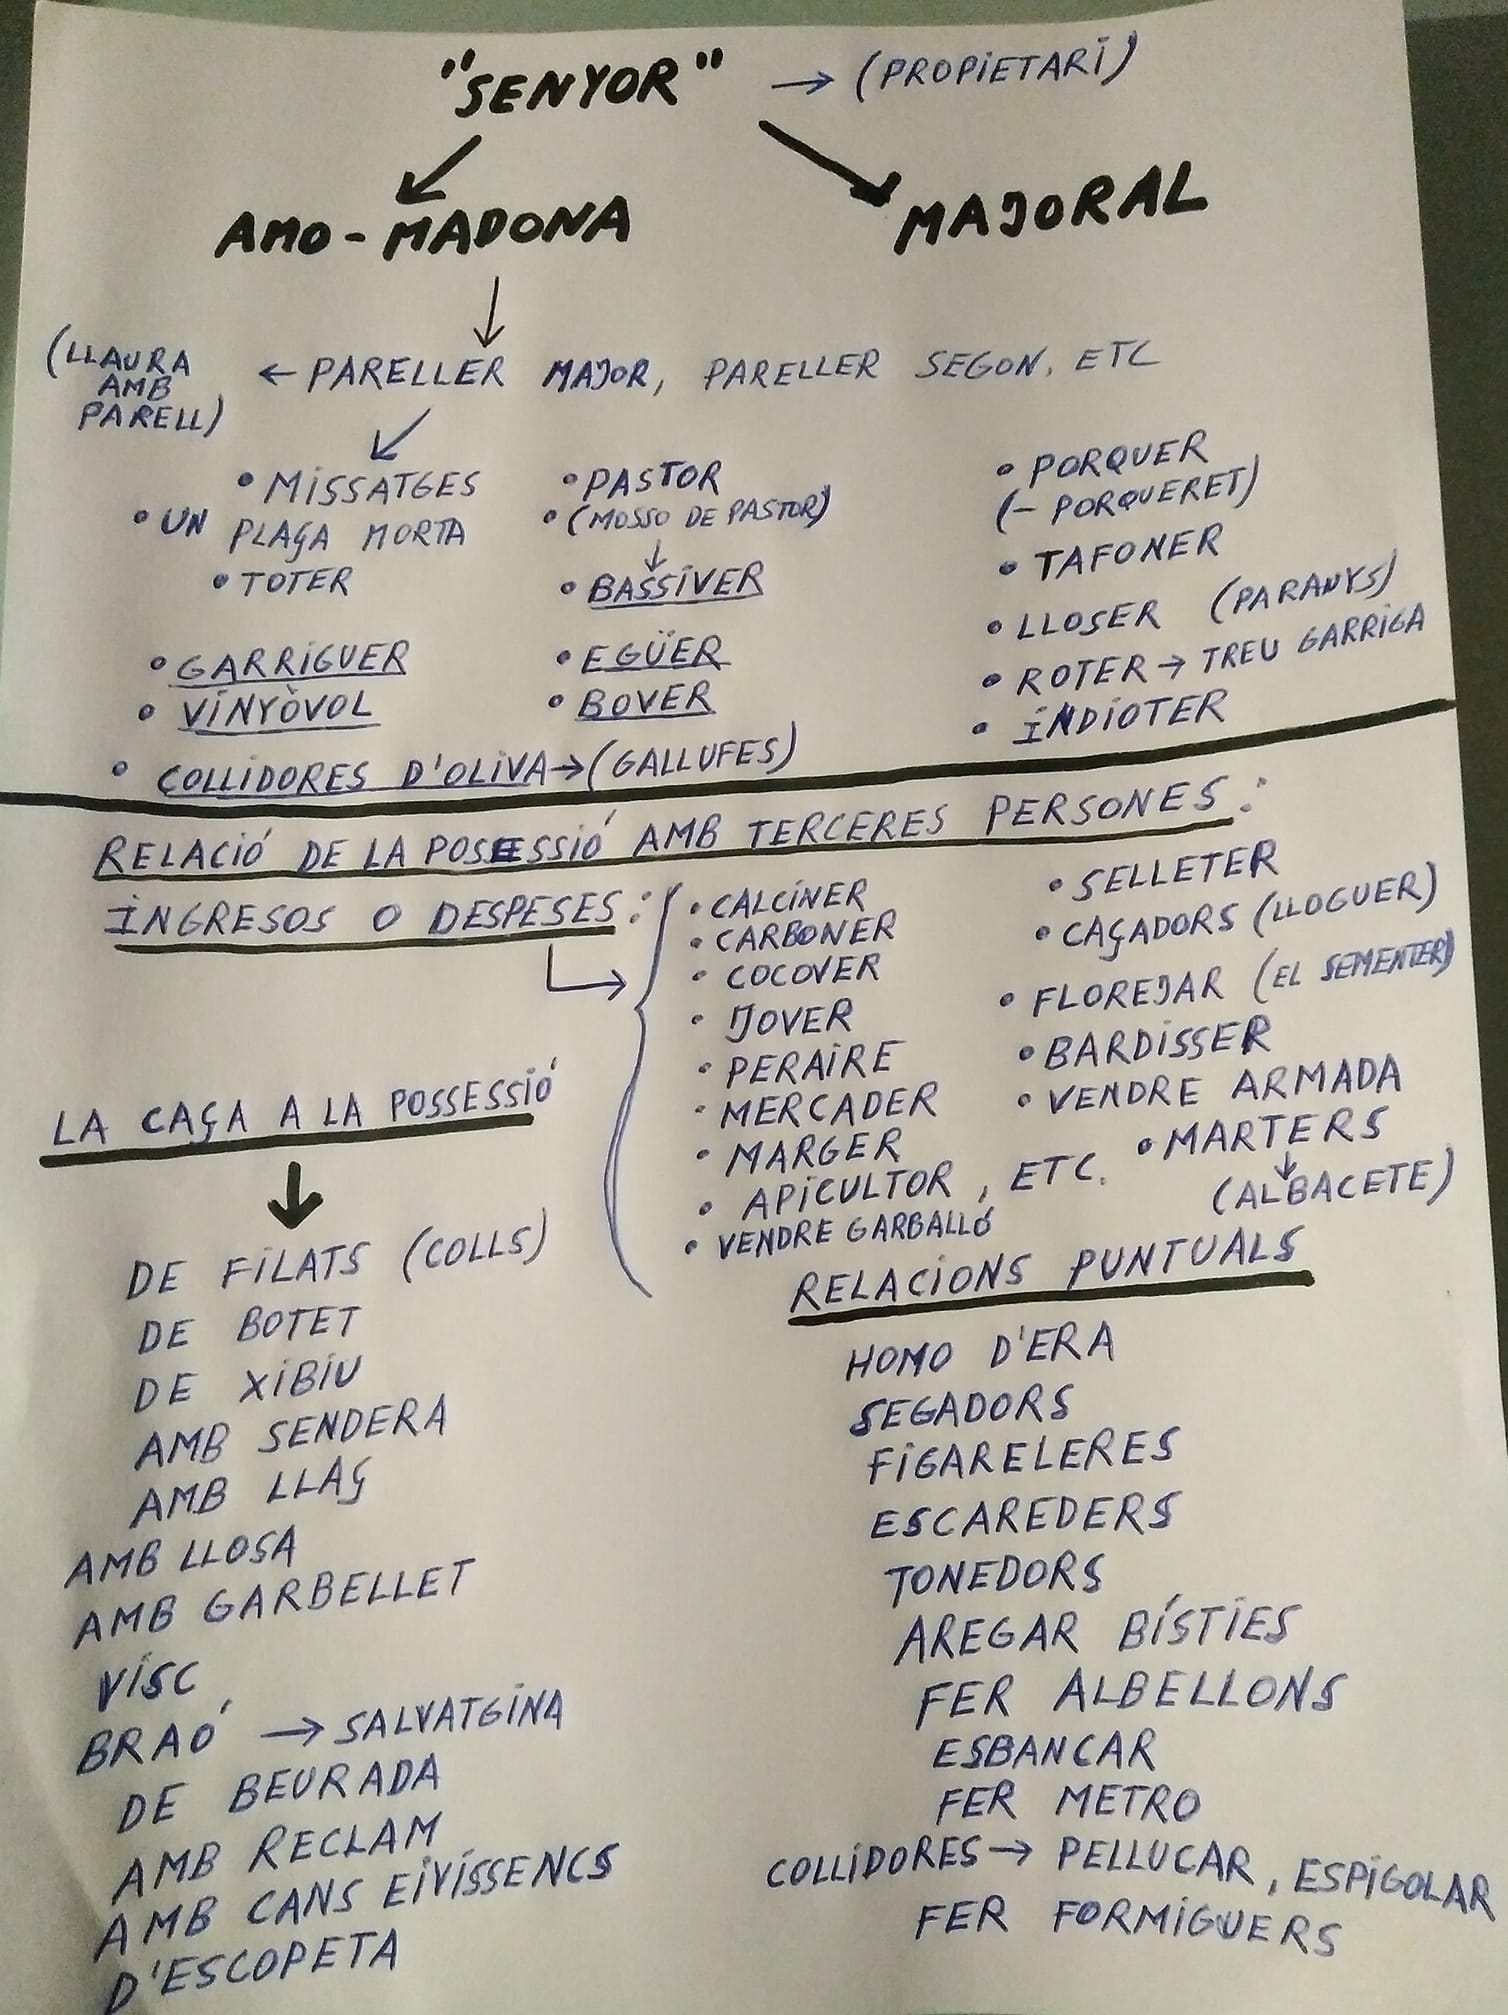 "SENYOR" → (PROPIETARI)
AMO - MADONA
MAJORAL
(LLAURA
AMB
PARELL)
← PARELLER MAJOR, PARELLER SEGON, ETC
• MISSATGES
• UN PLAÇA MORTA
• TOTER
• GARRIGUER
• VINYÒVOL
• COLLIDORES D'OLIVA → (GALLUFES)
• PASTOR
• (MOSSO DE PASTOR)
↓
• BASSIVER
• EGÜER
• BOVER
• PORQUER
(- PORQUERET)
• TAFONER
• LLOSER (PARANYS)
• ROTER → TREU GARRIGA
• INDIOTER
RELACIÓ DE LA POSSESSIÓ AMB TERCERES PERSONES:
INGRESOS O DESPESES:
• CALCINER
• CARBONER
• COCOVER
• JOVER
• PERAIRE
• MERCADER
• MARGER
• APICULTOR, ETC.
• VENDRE GARBALLÓ
• SELLETER
• CAÇADORS (LLOGUER)
• FLOREJAR (EL SEMENTER)
• BARDISSER
• VENDRE ARMADA
• MARTERS
↓
(ALBACETE)
LA CAÇA A LA POSSESSIÓ
↓
DE FILATS (COLLS)
DE BOTET
DE XIBIU
AMB SENDERA
AMB LLAÇ
AMB LLOSA
AMB GARBELLET
VISC
BRAÓ → SALVATGINA
DE BEURADA
AMB RECLAM
AMB CANS EIVISSENCS
D'ESCOPETA
RELACIONS PUNTUALS
HOMO D'ERA
SEGADORS
FIGARELERES
ESCAREDERS
TONEDORS
AREGAR BÍSTIES
FER ALBELLONS
ESBANCAR
FER METRO
COLLIDORES → PELLUCAR, ESPIGOLAR
FER FORMIGUERS